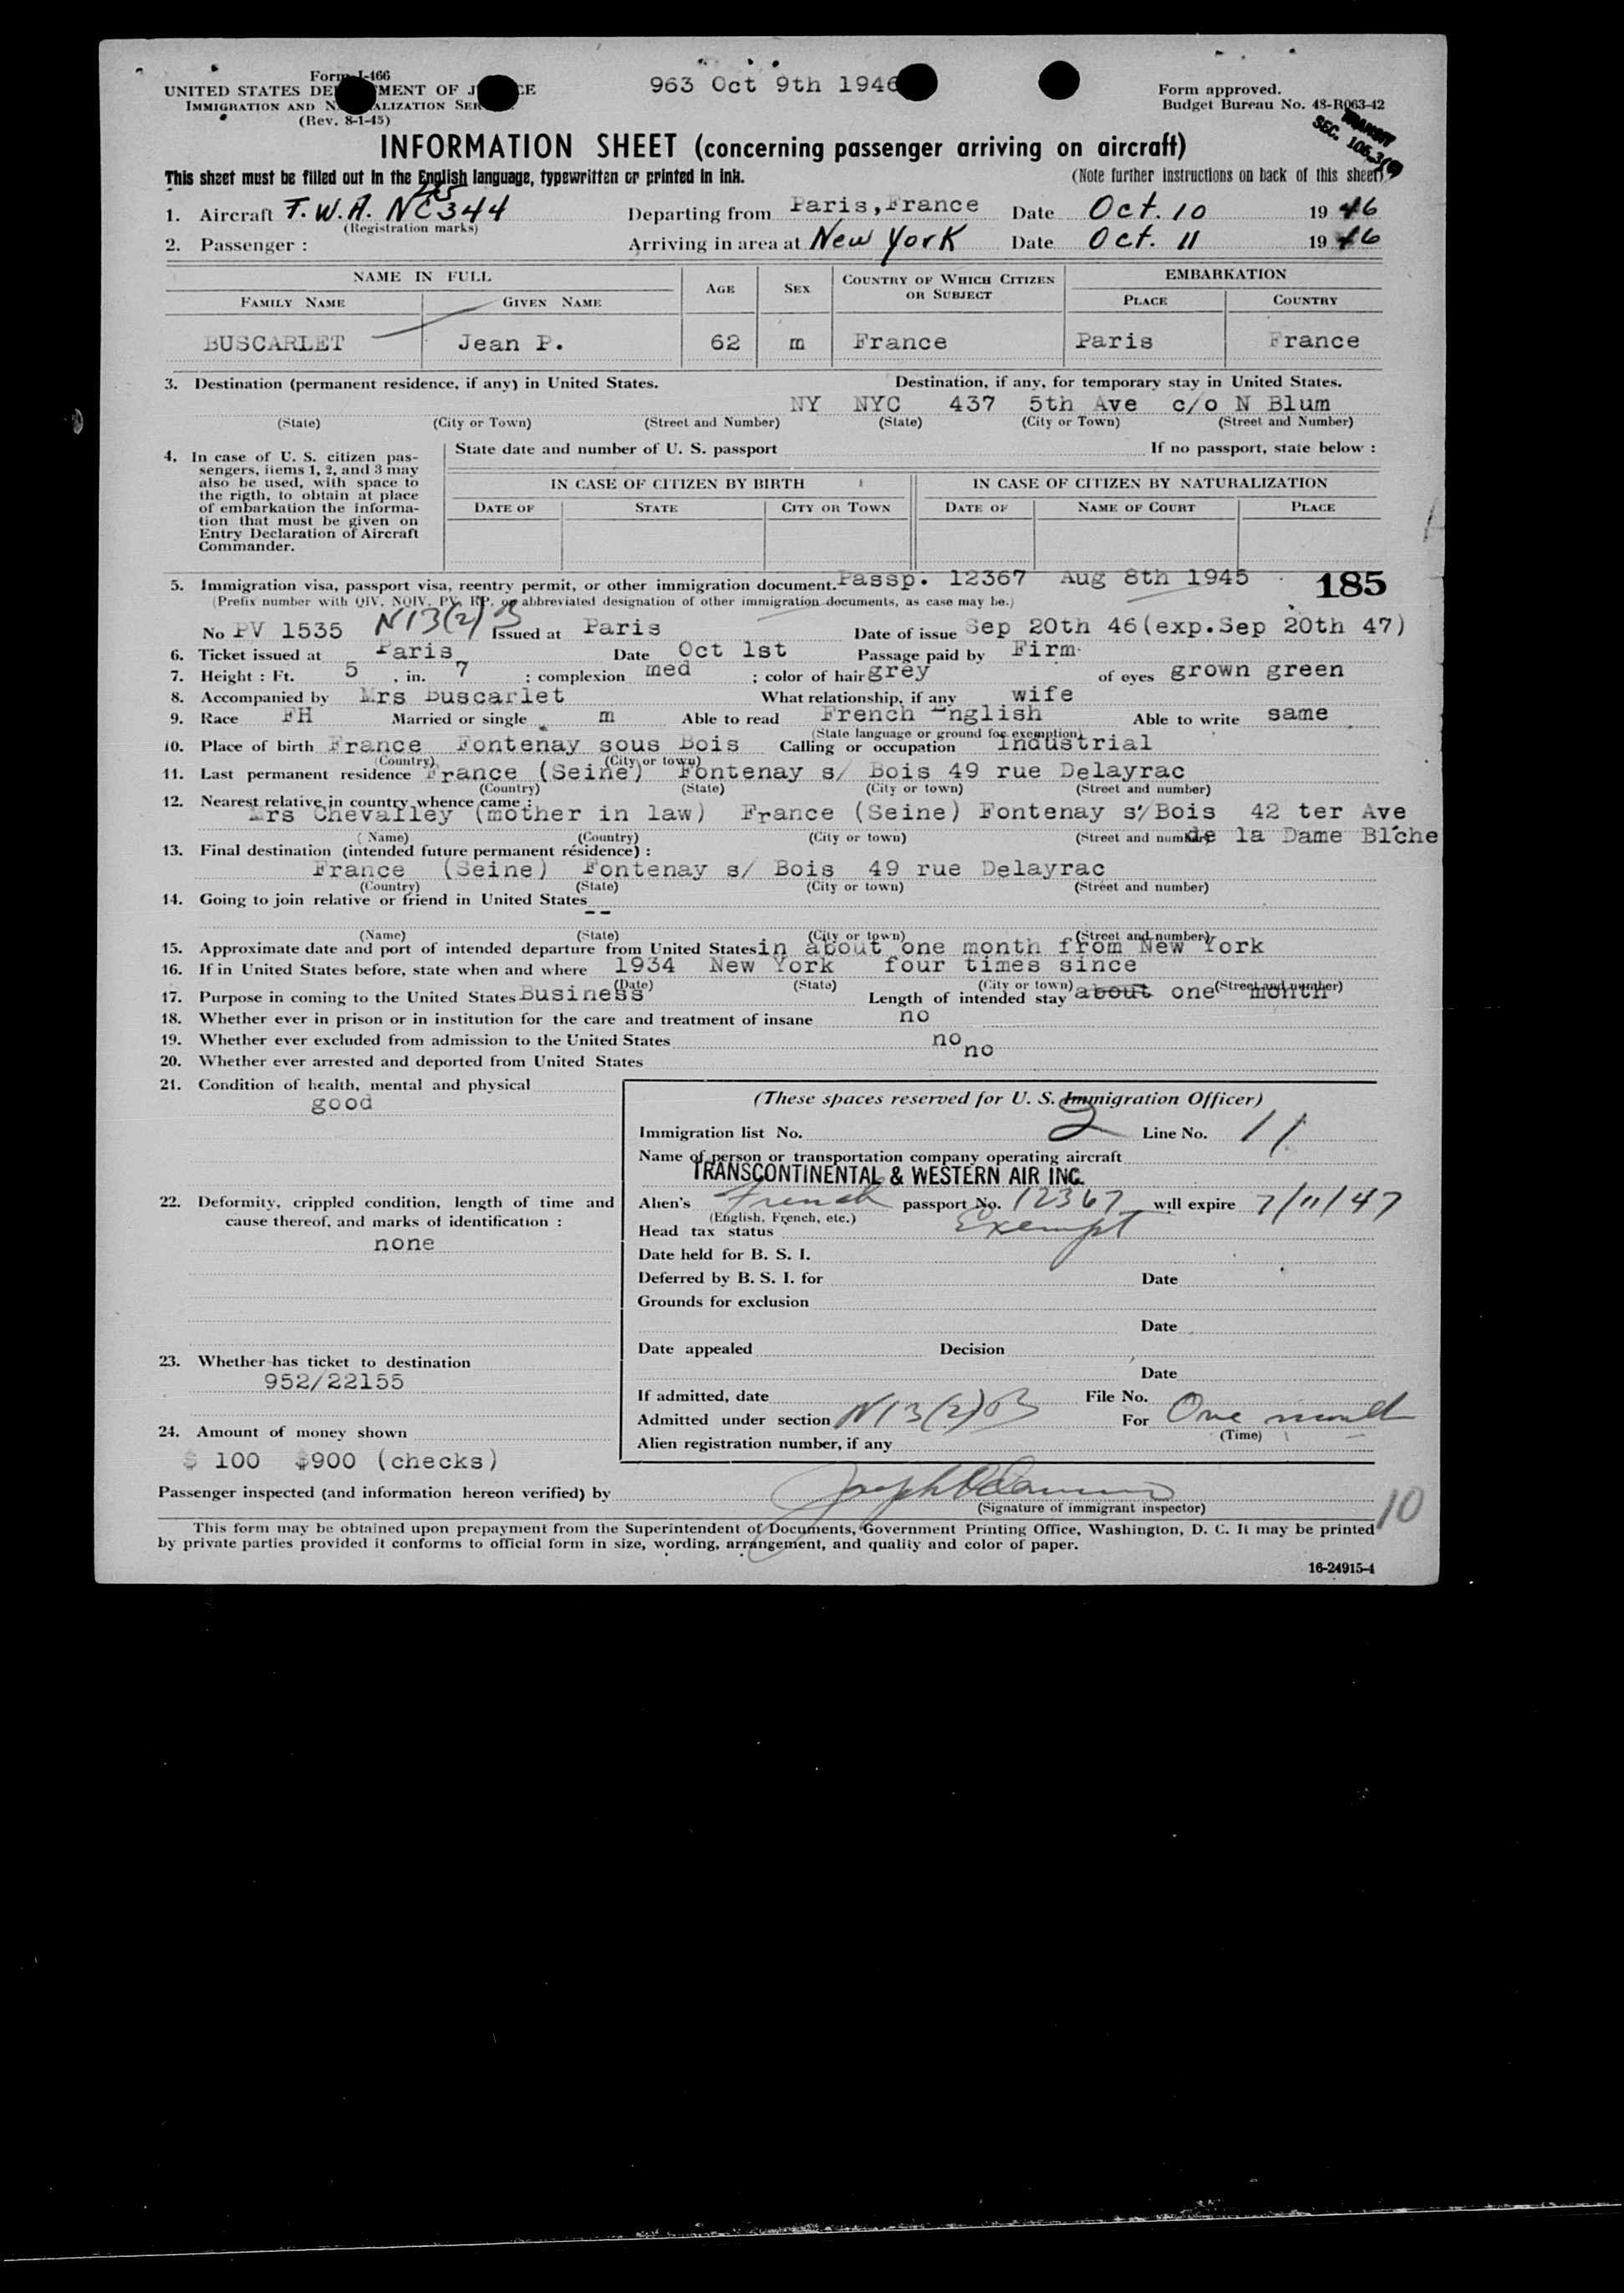 Form I-466
963 Oct 9th 1946
Form approved.
UNITED STATES DE MENT OF J CE
Budget Bureau No. 43-R063-42
IMMIGRATION AND N ALIZATION SER
(Rev. 8-1-45)
TRANSIT
SEC. 106.3
INFORMATION SHEET (concerning passenger arriving on aircraft)
This sheet must be filled out in the English language, typewritten or printed in ink.
(Note further instructions on back of this sheet)
1. Aircraft T.W.A. NC344 Departing from Paris,France Date Oct. 10 19 46
(Registration marks)
2. Passenger : Arriving in area at New York Date Oct. 11 19 46
NAME IN FULL AGE SEX COUNTRY OF WHICH CITIZEN OR SUBJECT EMBARKATION
FAMILY NAME GIVEN NAME PLACE COUNTRY
BUSCARLET Jean P. 62 m France Paris France
3. Destination (permanent residence, if any) in United States. Destination, if any, for temporary stay in United States.
NY NYC 437 5th Ave c/o N Blum
(State) (City or Town) (Street and Number) (State) (City or Town) (Street and Number)
4. In case of U. S. citizen pas-
sengers, items 1, 2, and 3 may
also be used, with space to
the rigth, to obtain at place
of embarkation the informa-
tion that must be given on
Entry Declaration of Aircraft
Commander.
State date and number of U. S. passport If no passport, state below :
IN CASE OF CITIZEN BY BIRTH IN CASE OF CITIZEN BY NATURALIZATION
DATE OF STATE CITY OR TOWN DATE OF NAME OF COURT PLACE
5. Immigration visa, passport visa, reentry permit, or other immigration document. Passp. 12367 Aug 8th 1945 185
(Prefix number with QIV, NQIV, PV, RP, or abbreviated designation of other immigration documents, as case may be.)
No PV 1535 N13(2)B Issued at Paris Date of issue Sep 20th 46(exp.Sep 20th 47)
6. Ticket issued at Paris Date Oct 1st Passage paid by Firm
7. Height : Ft. 5 , in. 7 ; complexion med ; color of hair grey of eyes grown green
8. Accompanied by Mrs Buscarlet What relationship, if any wife
9. Race FH Married or single m Able to read French English Able to write same
(State language or ground for exemption)
10. Place of birth France Fontenay sous Bois Calling or occupation Industrial
(Country) (City or town)
11. Last permanent residence France (Seine) Fontenay s/ Bois 49 rue Delayrac
(Country) (State) (City or town) (Street and number)
12. Nearest relative in country whence came :
Mrs Chevalley (mother in law) France (Seine) Fontenay s/Bois 42 ter Ave
de la Dame Blche
(Name) (Country) (City or town) (Street and number)
13. Final destination (intended future permanent résidence) :
France (Seine) Fontenay s/ Bois 49 rue Delayrac
(Country) (State) (City or town) (Street and number)
14. Going to join relative or friend in United States
--
(Name) (State) (City or town) (Street and number)
15. Approximate date and port of intended departure from United States in about one month from New York
16. If in United States before, state when and where 1934 New York four times since
(Date) (State) (City or town) (Street and number)
17. Purpose in coming to the United States Business Length of intended stay about one month
18. Whether ever in prison or in institution for the care and treatment of insane no
19. Whether ever excluded from admission to the United States no
20. Whether ever arrested and deported from United States no
21. Condition of health, mental and physical
good
(These spaces reserved for U. S. Immigration Officer)
Immigration list No. 2 Line No. 11
Name of person or transportation company operating aircraft
TRANSCONTINENTAL & WESTERN AIR INC.
22. Deformity, crippled condition, length of time and
cause thereof, and marks of identification :
none
Alien's French passport No. 12367 will expire 7/11/47
(English, French, etc.)
Head tax status Exempt
Date held for B. S. I.
Deferred by B. S. I. for Date
Grounds for exclusion
Date
Date appealed Decision
Date
23. Whether has ticket to destination
952/22155
If admitted, date File No.
Admitted under section N13(2)B For One month
(Time)
24. Amount of money shown
$ 100 $900 (checks)
Alien registration number, if any
Passenger inspected (and information hereon verified) by
(Signature of immigrant inspector)
10
This form may be obtained upon prepayment from the Superintendent of Documents, Government Printing Office, Washington, D. C. It may be printed
by private parties provided it conforms to official form in size, wording, arrangement, and quality and color of paper.
16-24915-4